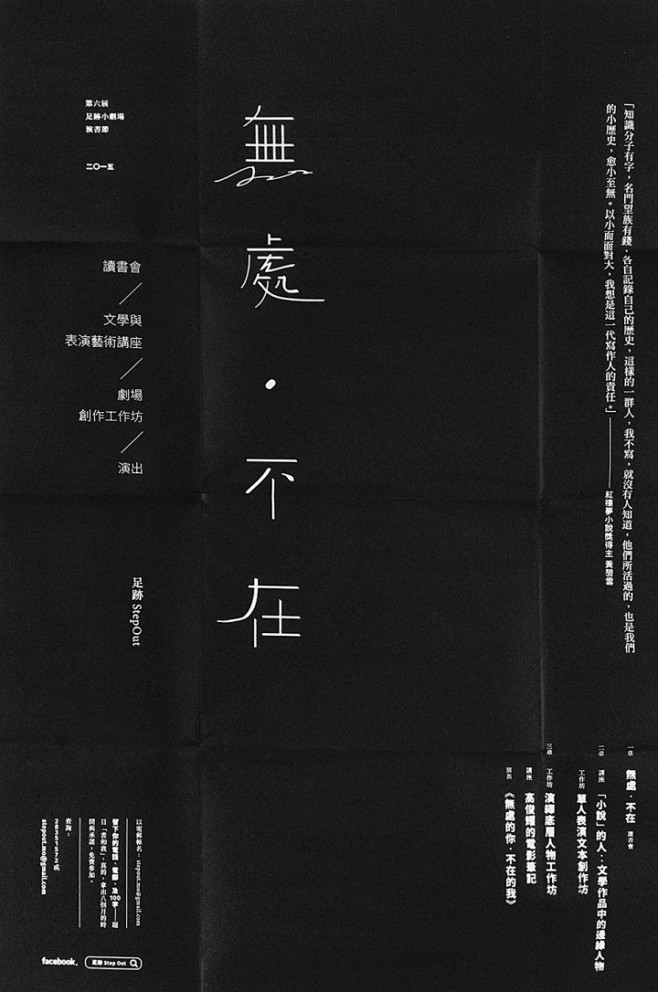 「知識分子有字，名門望族有錢，各自記錄自己的歷史，這樣的一群人，我不寫，就沒有人知道，他們所活過的，也是我們
的小歷史，愈小至無。以小而面對大，我想是這一代寫作人的責任。」
紅樓夢小說獎得主 黃碧雲
無處・不在
第六屆
足跡小劇場
演書節
二〇一五
讀書會
文學與
表演藝術講座
劇場
創作工作坊
演出
足跡 StepOut
一章
無處・不在 讀書會
二章
講座 「小說」的人：文學作品中的邊緣人物
工作坊 單人表演文本創作坊
三章
工作坊 演繹底層人物工作坊
講座 高俊耀的電影筆記
演出 《無處的你・不在的我》
以電郵報名：stepout.mo@gmail.com
留下你的電話、電郵、及100字──以
查詢：
stepout.mo@gmail.com
facebook.
足跡 Step Out